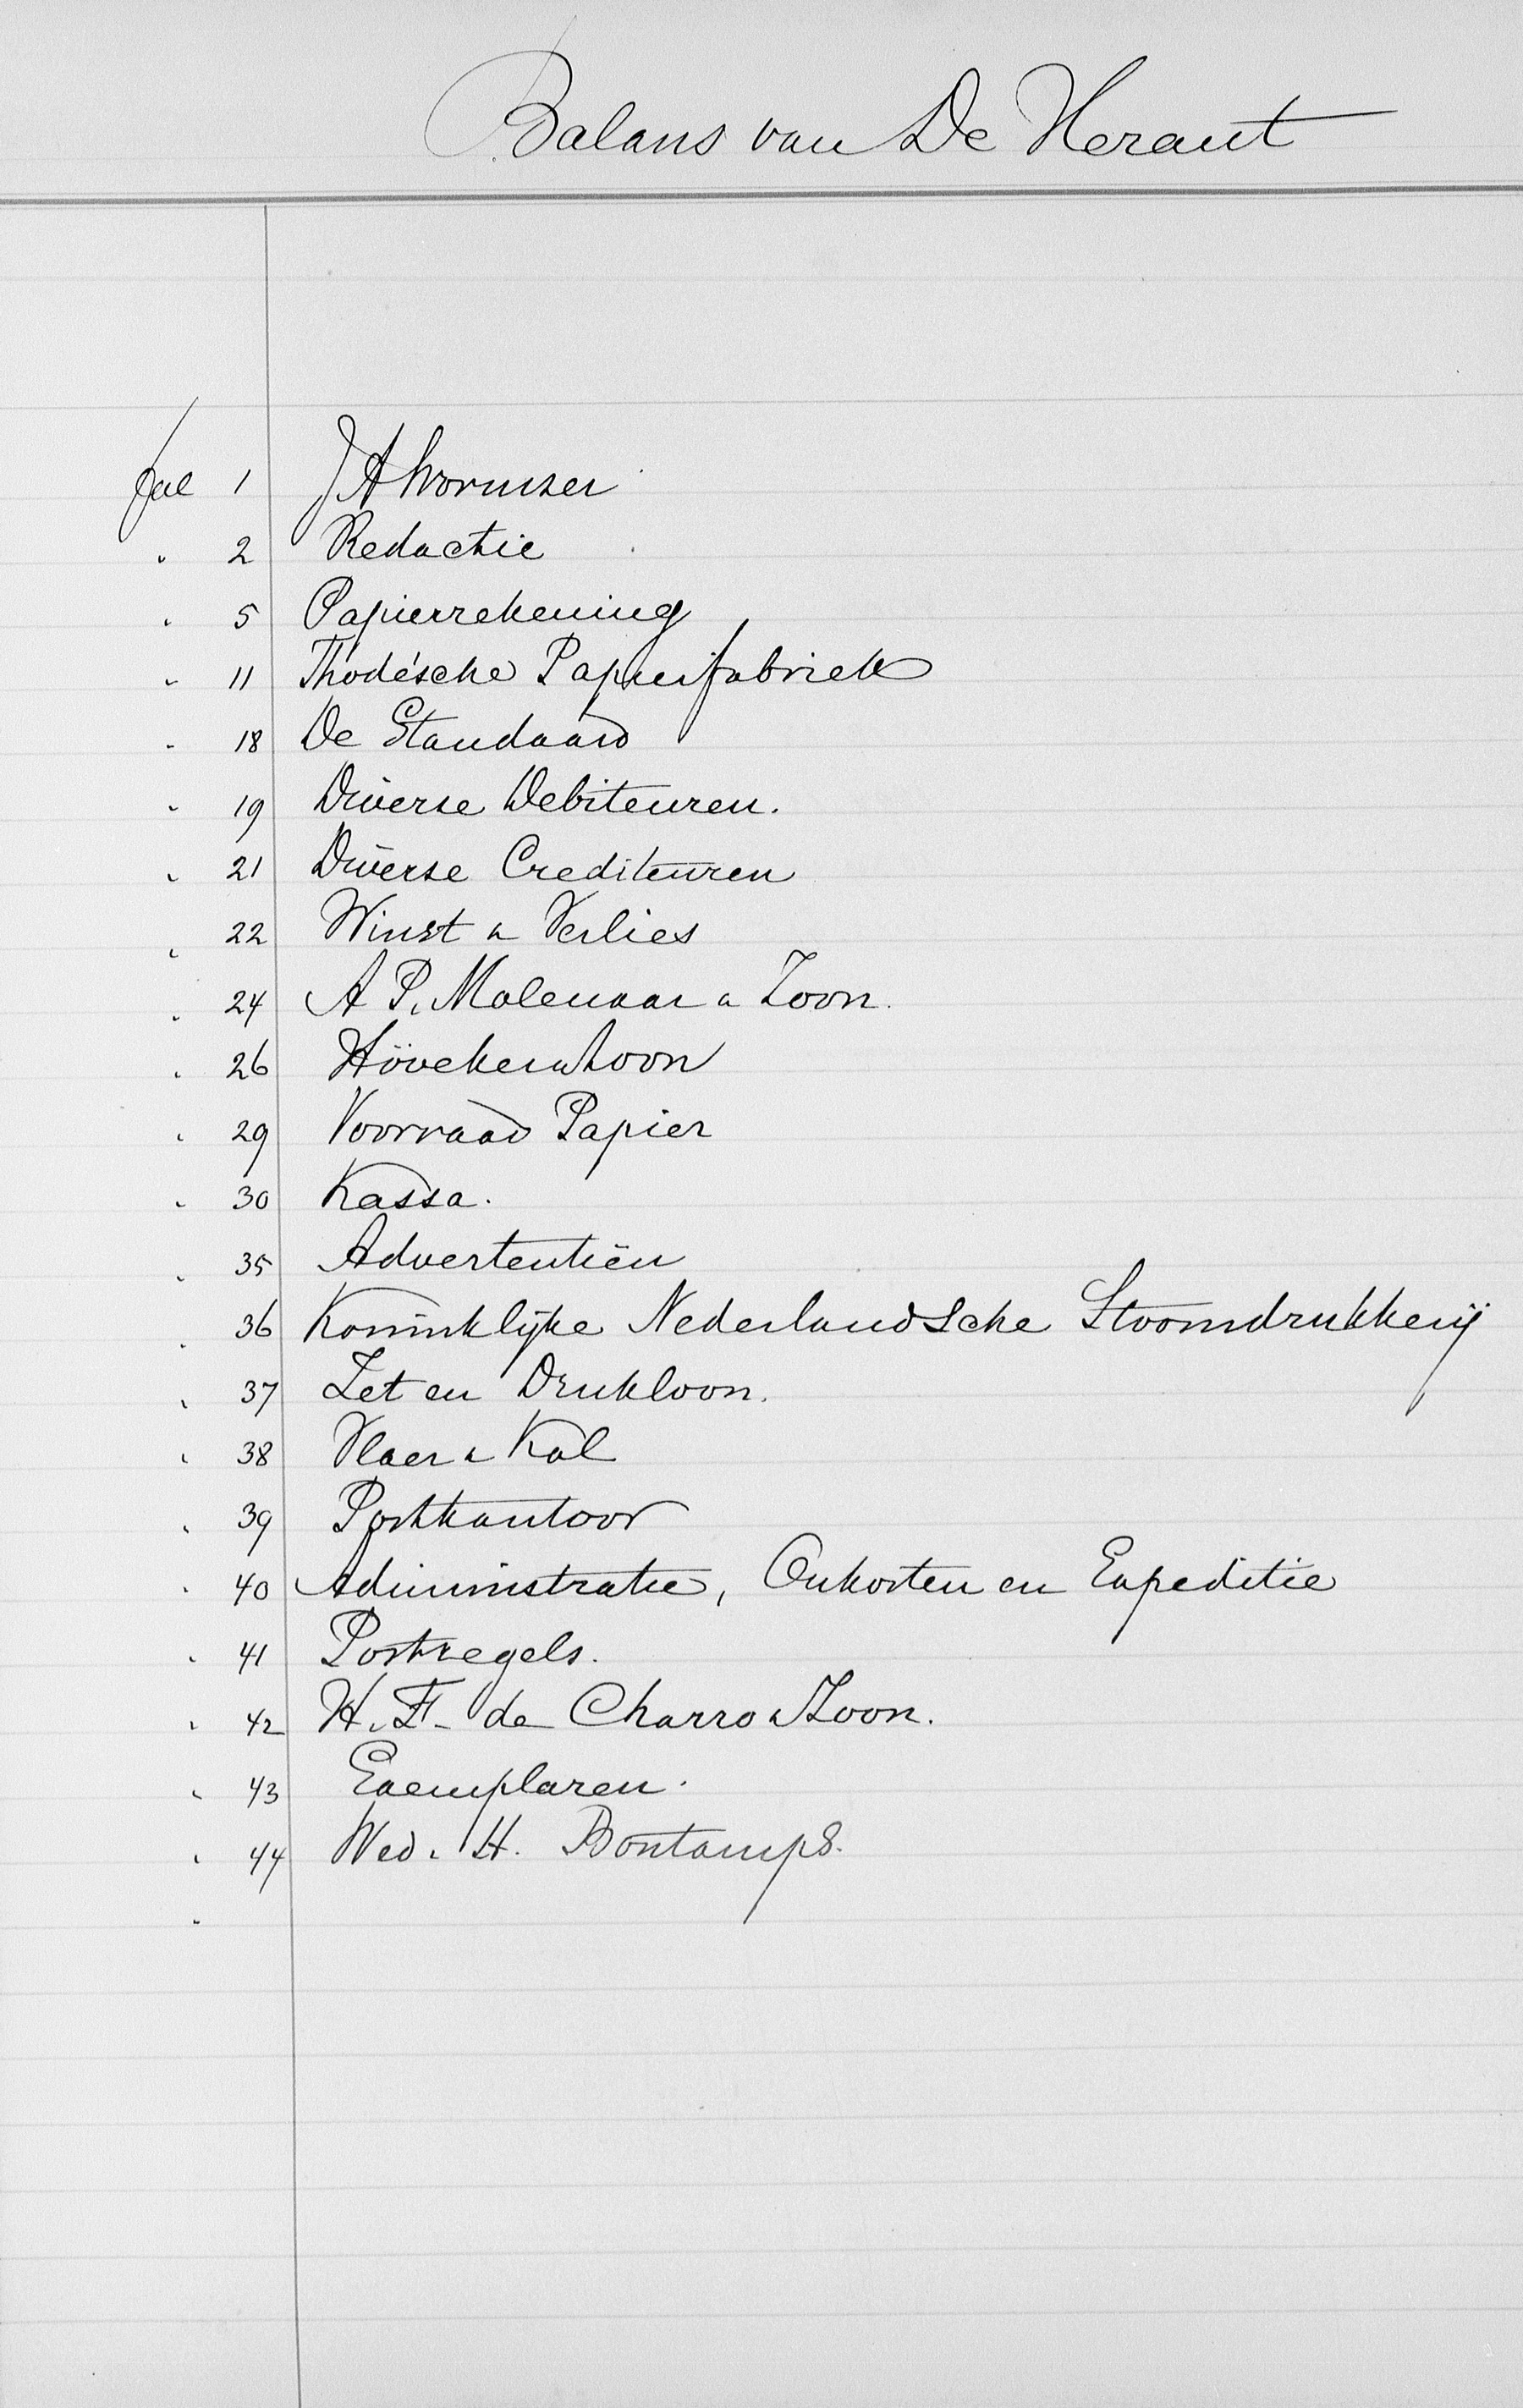 Balans van De Heraut
fol 1 J A Wormser
" 2 Redactie
" 5 Papierrekening
" 11 Thodésche Papierfabriek
" 18 De Standaard
" 19 Diverse Debiteuren.
" 21 Diverse Crediteuren
" 22 Winst & Verlies
" 24 A P. Molenaar & Zoon.
" 26 Höveker & Zoon
" 29 Voorraad Papier
" 30 Kassa.
" 35 Advertentiën
" 36 Koninklijke Nederlandsche Stoomdrukkerij
" 37 Zet en Drukloon.
" 38 Vlaer & Kol
" 39 Postkantoor
" 40 Administratie, Onkosten en Expeditie
" 41 Postzegels.
" 42 H. F. de Charro & Zoon.
" 43 Exemplaren.
" 44 Wed. H. Bontamps.
"